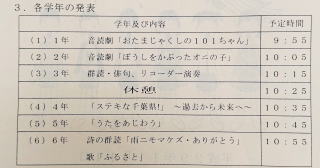 ３．各学年の発表
学年及び内容 予定時間
（１）１年 音読劇「おたまじゃくしの１０１ちゃん」 ９：５５
（２）２年 音読劇「ぼうしをかぶったオニの子」 １０：０５
（３）３年 群読・俳句、リコーダー演奏 １０：１５
休憩 １０：２５
（４）４年 「ステキな千葉県！ ～過去から未来へ～ １０：３５
（５）５年 「うたをあじわう」 １０：４５
（６）６年 詩の群読「雨ニモマケズ・ありがとう」 １０：５５
歌「ふるさと」